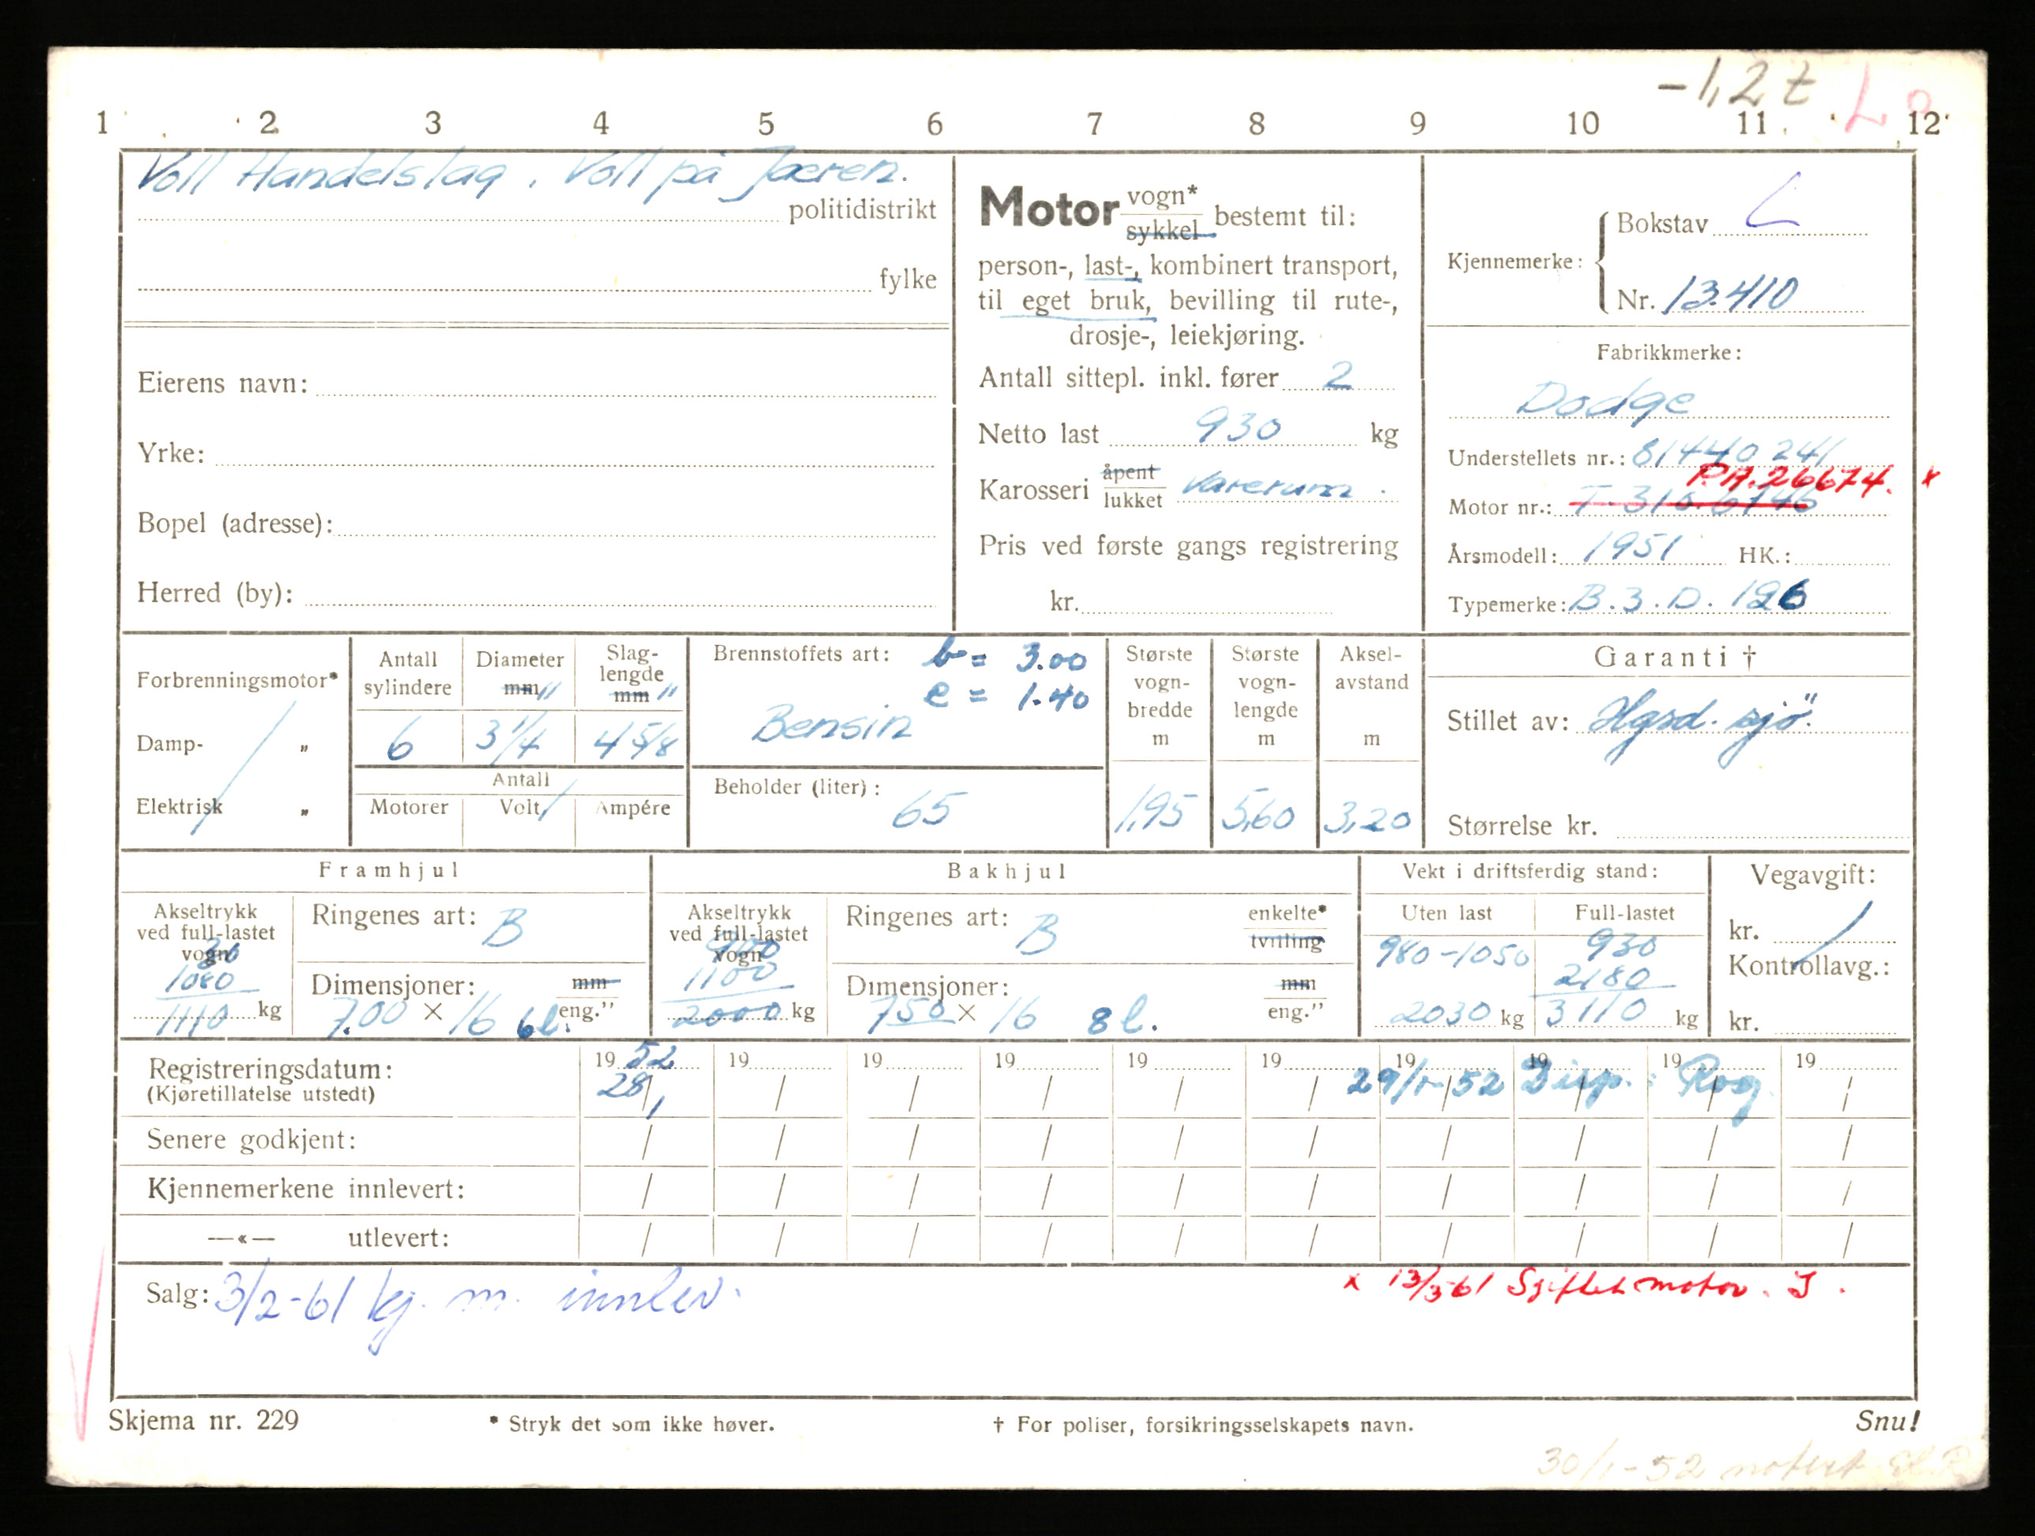 -1,2 t L
1 2 3 4 5 6 7 8 9 10 11 12
Voll Handelslag. Voll på Jæren.
politidistrikt
fylke
Eierens navn:
Yrke:
Bopel (adresse):
Herred (by):
Motor vogn* sykkel bestemt til:
person-, last-, kombinert transport,
til eget bruk, bevilling til rute-,
drosje-, leiekjøring.
Antall sittepl. inkl. fører 2
Netto last 930 kg
Karosseri åpent lukket Varerum.
Pris ved første gangs registrering
kr.
Kjennemerke: Bokstav L
Nr. 13.410
Fabrikkmerke:
Dodge
Understellets nr.: 81440241
P.A. 26674. x
Motor nr.: T. 310.6746
Årsmodell: 1951 HK.:
Typemerke: B.3.D. 126
Forbrenningsmotor*
Damp- „
Elektrisk „
Antall sylindere 6
Diameter mm " 3 1/4
Slaglengde mm " 4 5/8
Antall
Motorer Volt Ampére
Brennstoffets art: b = 3.00
e = 1.40
Bensin
Beholder (liter): 65
Største vognbredde m 1,95
Største vognlengde m 5,60
Akselavstand m 3,20
Garanti †
Stillet av: Hgsd. sjö.
Størrelse kr.
Framhjul
Akseltrykk ved full-lastet vogn
30
1080
1110 kg
Ringenes art: B
Dimensjoner: mm eng."
7.00 × 16 6 l.
Bakhjul
Akseltrykk ved full-lastet vogn
900
1100
2000 kg
Ringenes art: B enkelte* tvilling
Dimensjoner: mm eng."
750 × 16 8 l.
Vekt i driftsferdig stand:
Uten last Full-lastet
980-1050 930
2180
2030 kg 3110 kg
Vegavgift:
kr.
Kontrollavg.:
kr.
Registreringsdatum: 19 52 19 19 19 19 19 19 19 19 19
(Kjøretillatelse utstedt) 28/1 29/1-52 Disp. Rog.
Senere godkjent:
Kjennemerkene innlevert:
—«— utlevert:
Salg: 3/2-61 kj. m. innlev.
x 13/3-61 Sgiftet motor. J.
Skjema nr. 229 * Stryk det som ikke høver. † For poliser, forsikringsselskapets navn. Snu!
30/1-52 notert